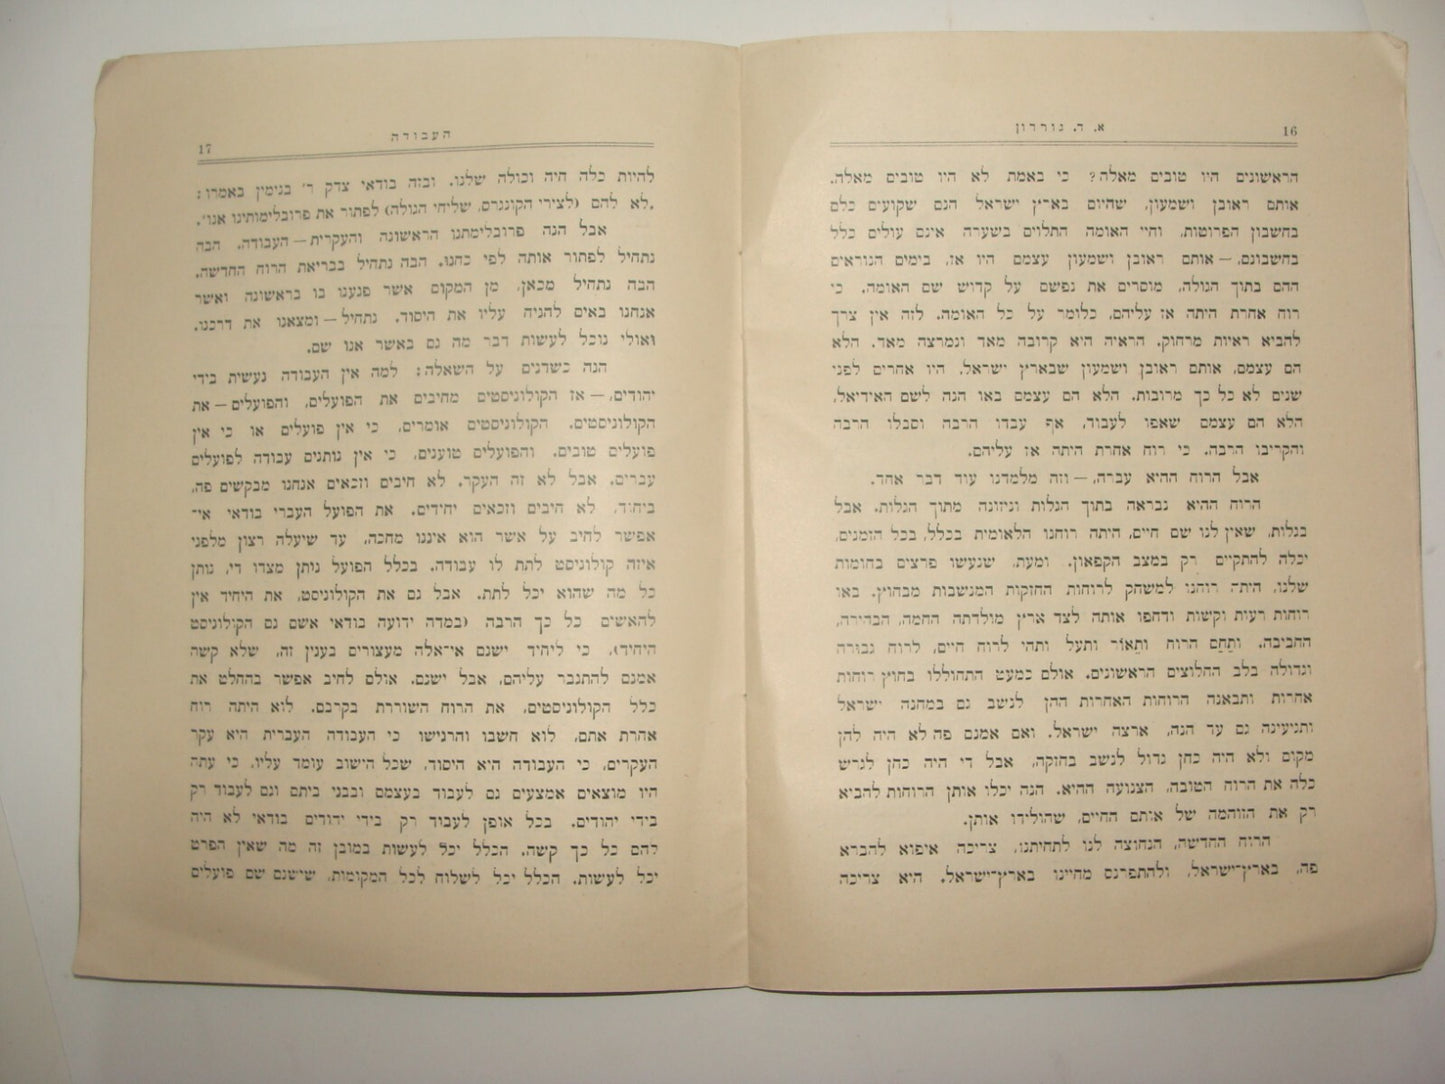 16
א. ד. גורדון
הראשונים היו טובים מאלה? כי באמת לא היו טובים מאלה.
אותם ראובן ושמעון, שהיום בארץ ישראל הנם שקועים כלם
בחשבון הפרוטות, וחיי האומה התלוים בשערה אינם עולים כלל
בחשבונם, — אותם ראובן ושמעון עצמם היו אז, בימים הנוראים
ההם בתוך הגולה, מוסרים את נפשם על קדוש שם האומה. כי
רוח אחרת היתה אז עליהם, כלומר על כל האומה. לזה אין צרך
להביא ראיות מרחוק. הראיה היא קרובה מאד ונמרצה מאד. הלא
הם עצמם, אותם ראובן ושמעון שבארץ ישראל, היו אחרים לפני
שנים לא כל כך מרובות. הלא הם עצמם באו הנה לשם האידיאל,
הלא הם עצמם שאפו לעבוד, אף עבדו הרבה וסבלו הרבה
והקריבו הרבה. כי רוח אחרת היתה אז עליהם.
אבל הרוח ההיא עברה, — וזה מלמדנו עוד דבר אחד.
הרוח ההיא נבראה בתוך הגלות וניזונה מתוך הגלות. אבל
בגלות, שאין לנו שם חיים, היתה רוחנו הלאומית בכלל, בכל הזמנים,
יכלה להתקיים רק במצב הקפאון. ומעת, שנעשו פרצים בחומות
שלנו, היתה רוחנו למשחק לרוחות החזקות המנשבות מבחוץ. באו
רוחות רעות וקשות ודחפו אותה לצד ארץ מולדתה החמה, הבהירה,
החביבה. ותחם הרוח ותאור ותעל ותהי לרוח חיים, לרוח גבורה
וגדולה בלב החלוצים הראשונים. אולם כמעט התחוללו בחוץ רוחות
אחרות ותבאנה הרוחות האחרות ההן לנשב גם במחנה ישראל
ותגיעינה גם עד הנה, ארצה ישראל. ואם אמנם פה לא היה להן
מקום ולא היה כחן גדול לנשב בחזקה, אבל די היה כחן לגרש
כלה את הרוח הטובה, הצנועה ההיא. הנה יכלו אותן הרוחות להביא
רק את הזוהמה של אותם החיים, שהולידו אותן.
הרוח החדשה, הנחוצה לנו לתחיתנו, צריכה איפוא להברא
פה, בארץ־ישראל, ולהתפרנס מחיינו בארץ־ישראל. היא צריכה
העבודה
17
להיות כלה חיה וכולה שלנו. ובזה בודאי צדק ר׳ בנימין באמרו:
„לא להם (לצירי הקונגרס, שליחי הגולה) לפתור את פרובלימותינו אנו״.
אבל הנה פרובלימתנו הראשונה והעקרית — העבודה. הבה
נתחיל לפתור אותה לפי כחנו. הבה נתחיל בבריאת הרוח החדשה.
הבה נתחיל מכאן, מן המקום אשר פגענו בו בראשונה ואשר
אנחנו באים להניח עליו את היסוד. נתחיל — ומצאנו את דרכנו.
ואולי נוכל לעשות דבר מה גם באשר אנו שם.
הנה כשדנים על השאלה: למה אין העבודה נעשית בידי
יהודים, — אז הקולוניסטים מחיבים את הפועלים, והפועלים — את
הקולוניסטים. הקולוניסטים אומרים, כי אין פועלים או כי אין
פועלים טובים. והפועלים טוענים, כי אין נותנים עבודה לפועלים
עברים. אבל לא זה העקר. לא חיבים וזכאים אנחנו מבקשים פה,
ביחוד, לא חיבים וזכאים יחידים. את הפועל העברי בודאי אי־
אפשר לחיב על אשר הוא איננו מחכה, עד שיעלה רצון מלפני
איזה קולוניסט לתת לו עבודה. בכלל הפועל ניתן מצדו די, נותן
כל מה שהוא יכל לתת. אבל גם את הקולוניסט, את היחיד אין
להאשים כל כך הרבה (במדה ידועה בודאי אשם גם הקולוניסט
היחיד), כי ליחיד ישנם אי־אלה מעצורים בענין זה, שלא קשה
אמנם להתגבר עליהם, אבל ישנם. אולם לחיב אפשר בהחלט את
כלל הקולוניסטים, את הרוח השוררת בקרבם. לוא היתה רוח
אחרת אתם, לוא חשבו והרגישו כי העבודה העברית היא עקר
העקרים, כי העבודה היא היסוד, שכל הישוב עומד עליו, כי עתה
היו מוצאים אמצעים גם לעבוד בעצמם ובבני ביתם וגם לעבוד רק
בידי יהודים. בכל אופן לעבוד רק בידי יהודים בודאי לא היה
להם כל כך קשה. הכלל יכל לעשות במובן זה מה שאין הפרט
יכל לעשות. הכלל יכל לשלוח לכל המקומות, שישנם שם פועלים